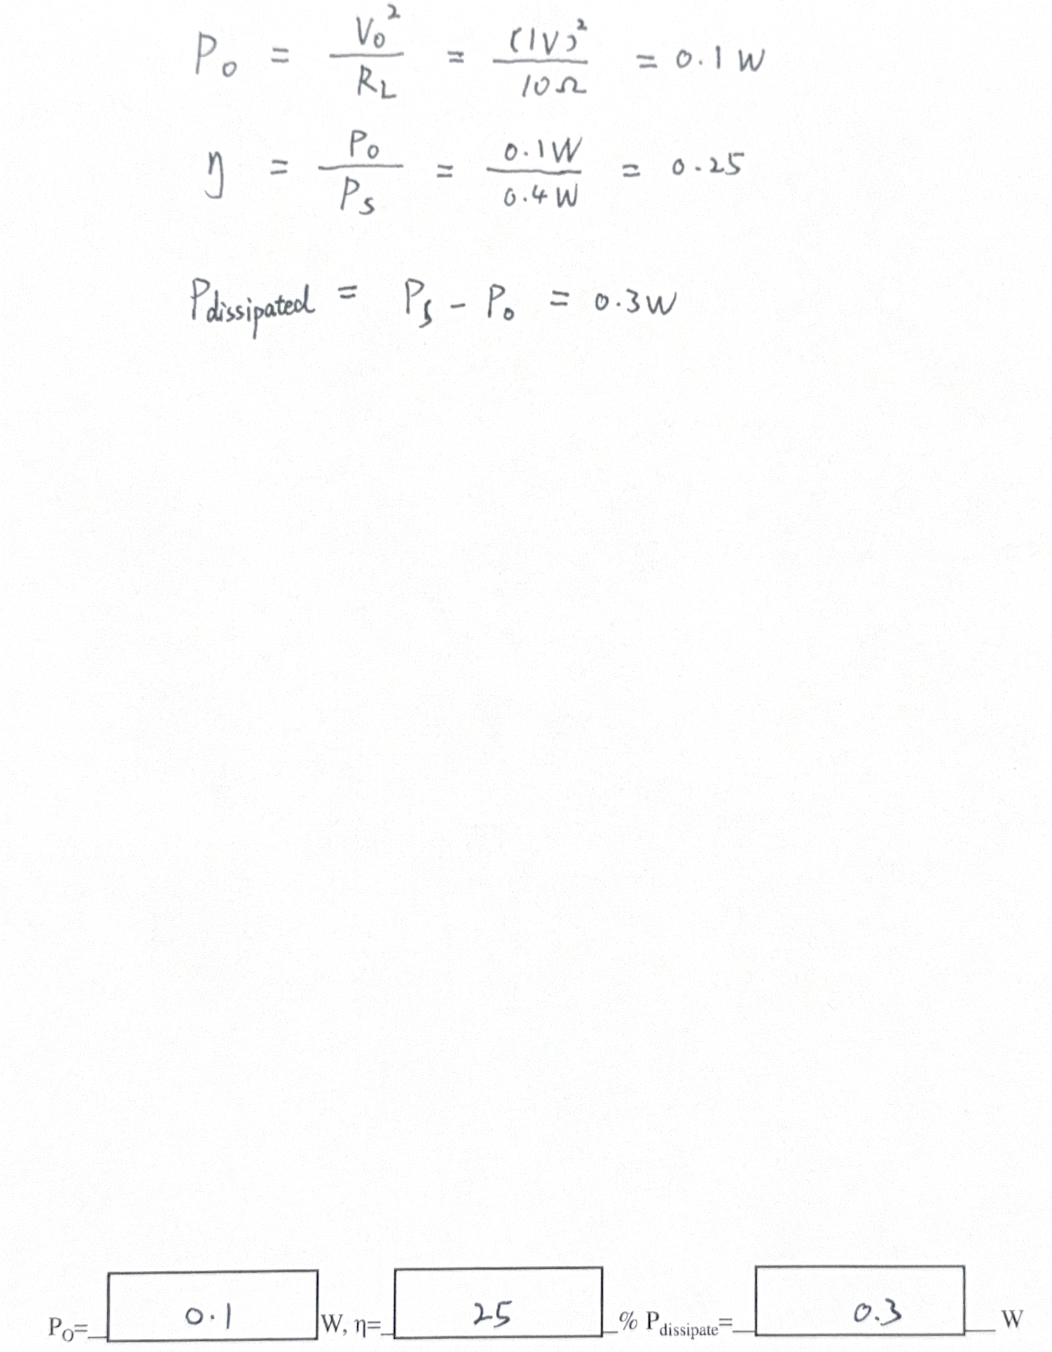 P₀ = V₀² / R_L = (1V)² / 10Ω = 0.1 W
η = P₀ / P_S = 0.1W / 0.4W = 0.25
P_dissipated = P_S - P₀ = 0.3W
P_O= 0.1 W, η= 25 % P_dissipate= 0.3 W